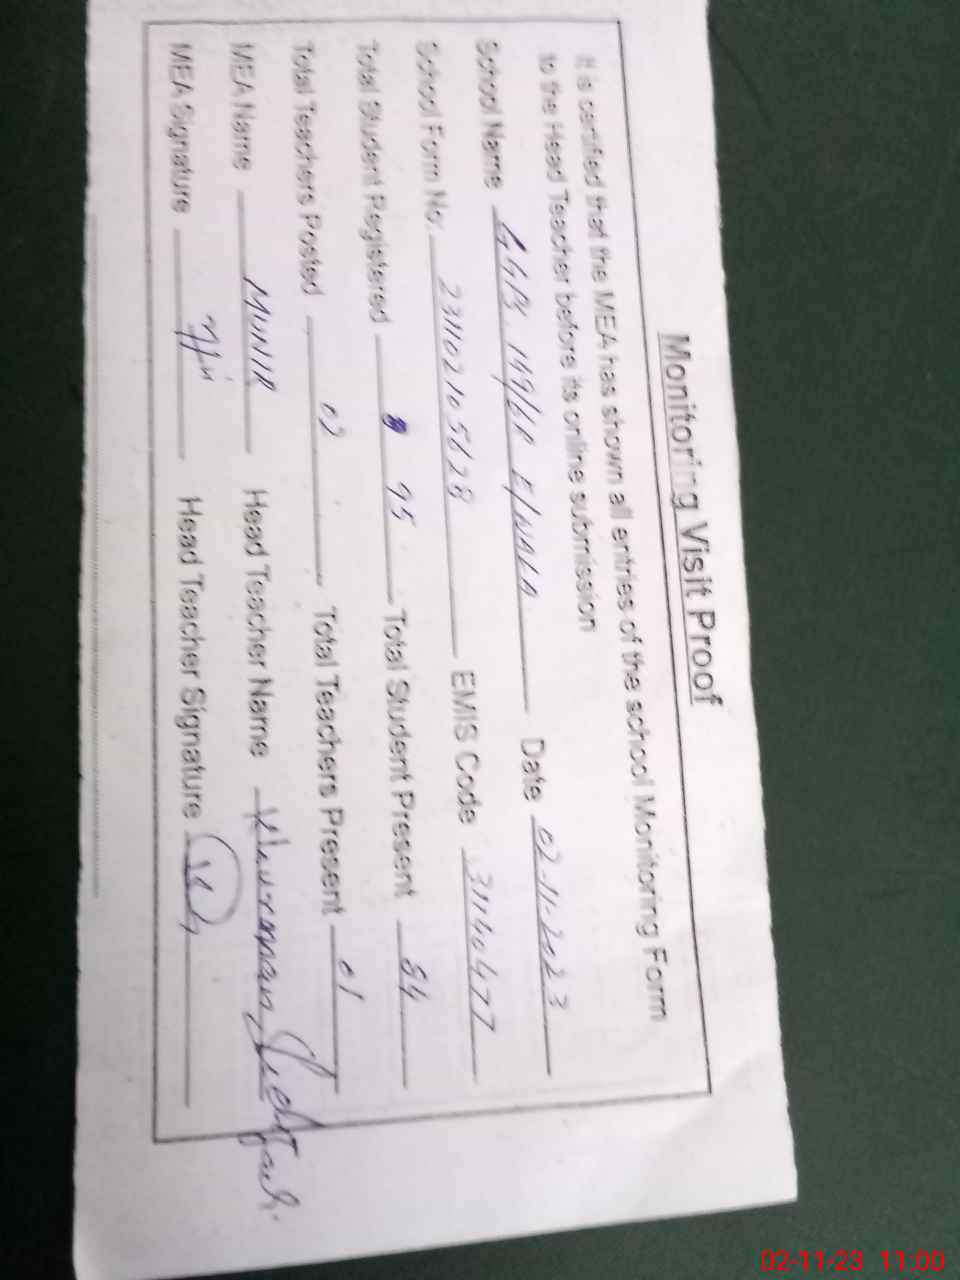 Monitoring Visit Proof
It is certified that the MEA has shown all entries of the school Monitoring Form
to the Head Teacher before its online submission
School Name GGPS 149/6R E/WALA Date 02-11-2023
School Form No: 231102105628 EMIS Code 31140477
Total Student Registered 95 Total Student Present 84
Total Teachers Posted 02 Total Teachers Present 01
MEA Name MUNIR Head Teacher Name
MEA Signature Head Teacher Signature
02-11-23 11:00